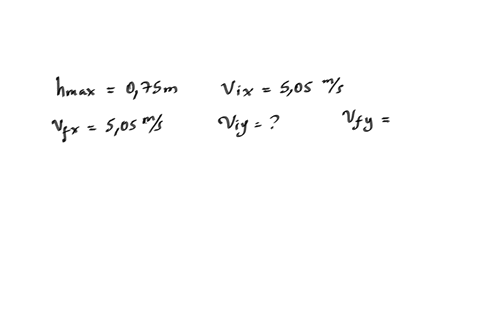 hmax = 0,75m vix = 5,05 m/s
vfx = 5,05 m/s viy = ? vfy =